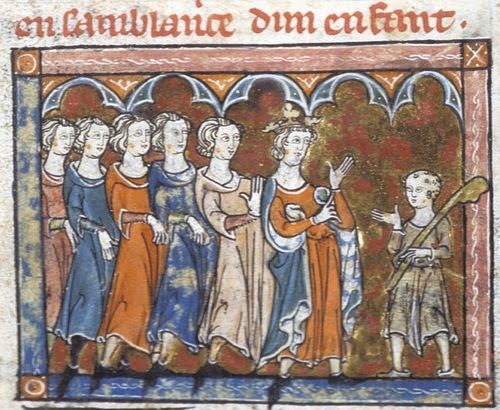 en samblance dun enfant.